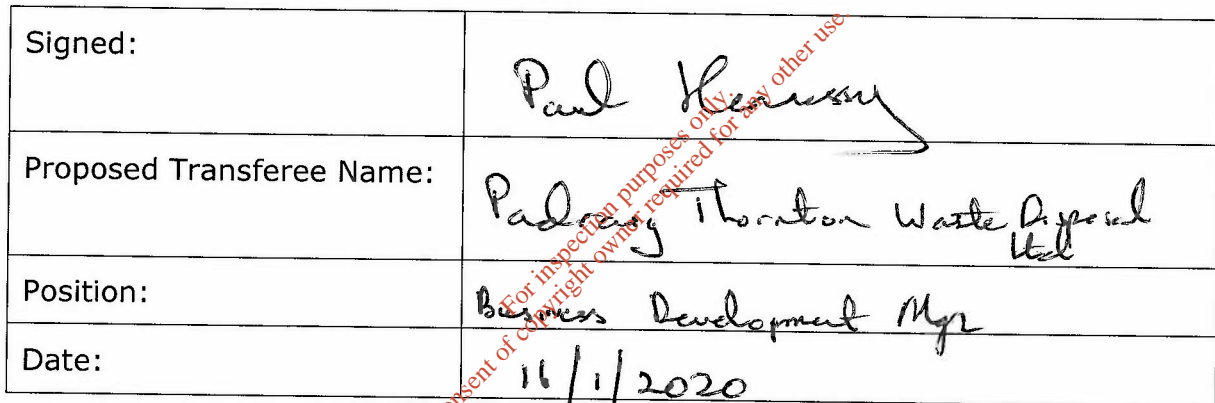 Signed:
Paul Hennessy
Proposed Transferee Name:
Padraig Thornton Waste Disposal
Ltd
Position:
Business Development Mgr
Date:
16/1/2020
For inspection purposes only.
Consent of copyright owner required for any other use